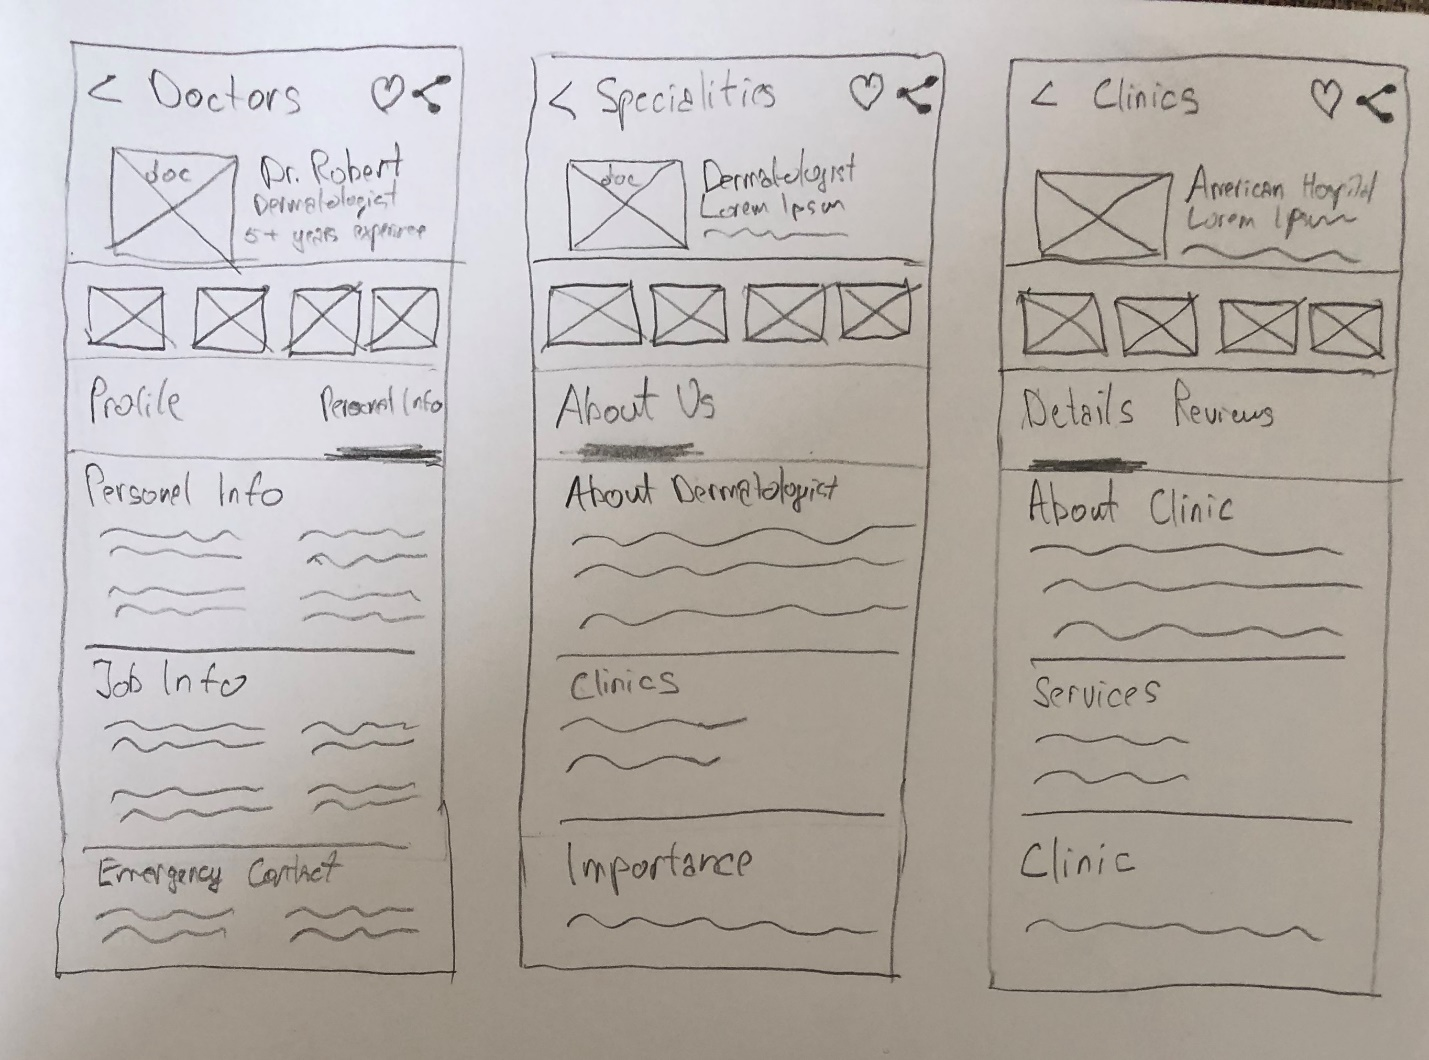 < Doctors
doc
Dr. Robert
Dermatologist
5+ years experience
Profile
Personal Info
Personel Info
Job Info
Emergency Contact
< Specialities
doc
Dermatologist
Lorem Ipsum
About Us
About Dermatologist
Clinics
Importance
< Clinics
American Hospital
Lorem Ipsum
Details Reviews
About Clinic
Services
Clinic